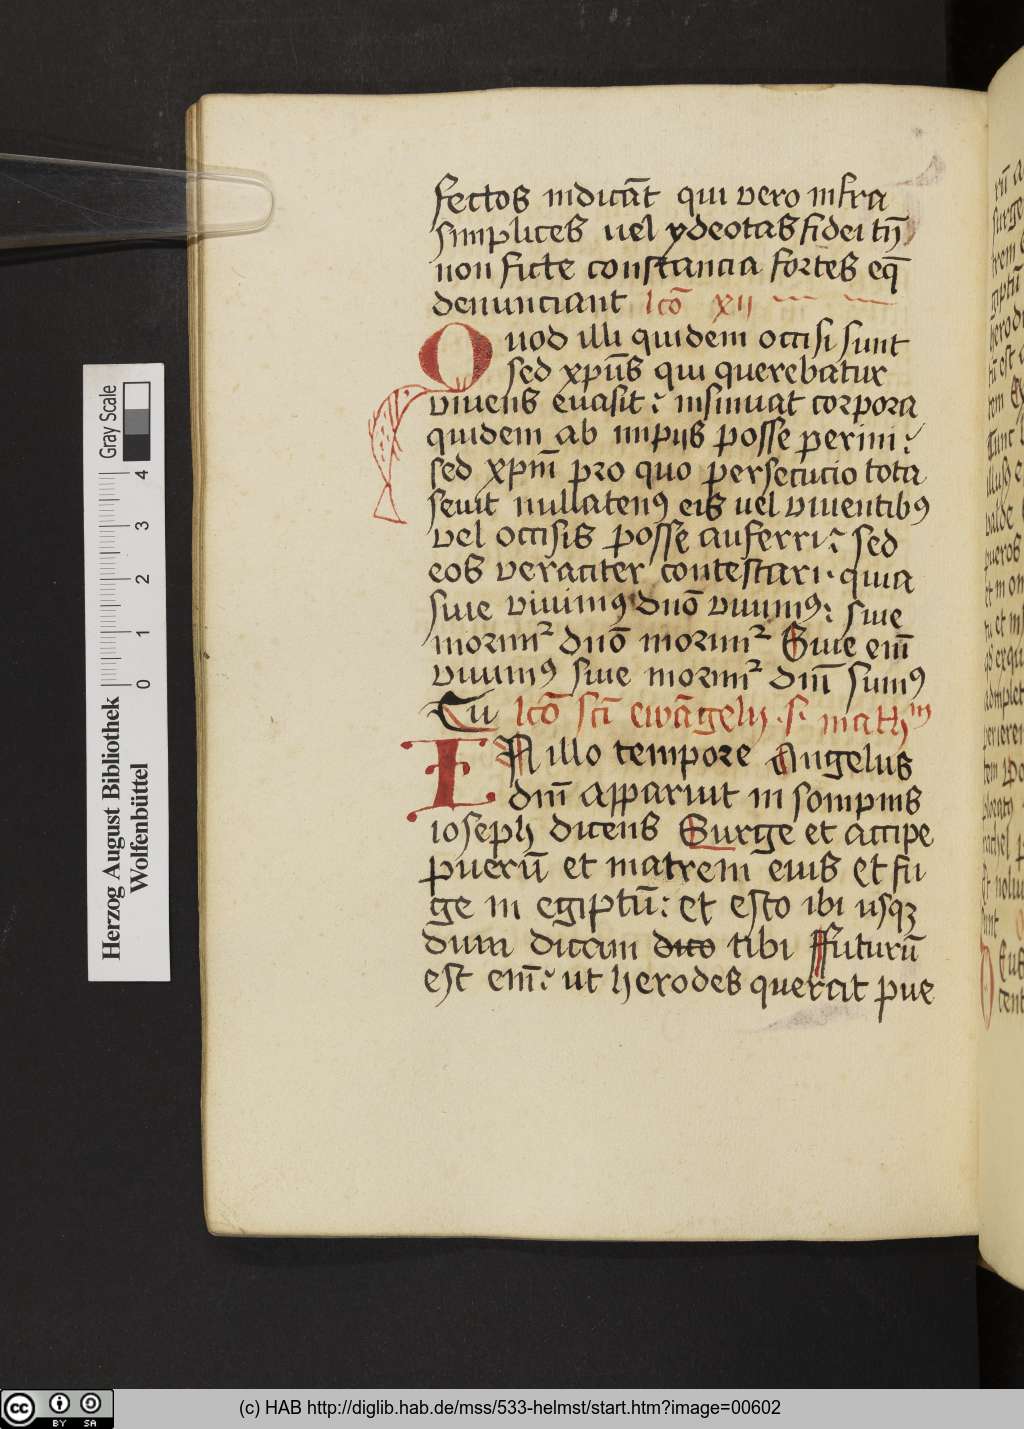 fectos indicāt qui vero infra
simplices uel ydeotas fidei tn̄
non ficte constancia fortes eq̄
denunciant lcō xij
Quod illi quidem occisi sunt
sed xpūs qui querebatur
viuens euasit : insinuat corpora
quidem ab impijs posse perimi :
sed xpm̄ pro quo persecucio tota
seuit nullatenꝰ eis uel viuentibꝰ
vel occisis posse auferri : sed
eos veraciter contestari · quia
siue viuimꝰ dnō viuimꝰ : siue
morimr dnō morimr Siue em̄
viuimꝰ siue morimr dnī sumꝰ
Tu lcō scī ewāgelij · s · mathm
In illo tempore Angelus
dnī apparuit in sompnis
ioseph dicens Surge et accipe
puerū et matrem eius et fu
ge in egiptū : et esto ibi usqz
dum dicam dico tibi ffuturū
est em̄ : ut herodes querat pue
Herzog August Bibliothek
Wolfenbüttel
Gray Scale
0 1 2 3 4
cc BY SA
(c) HAB http://diglib.hab.de/mss/533-helmst/start.htm?image=00602